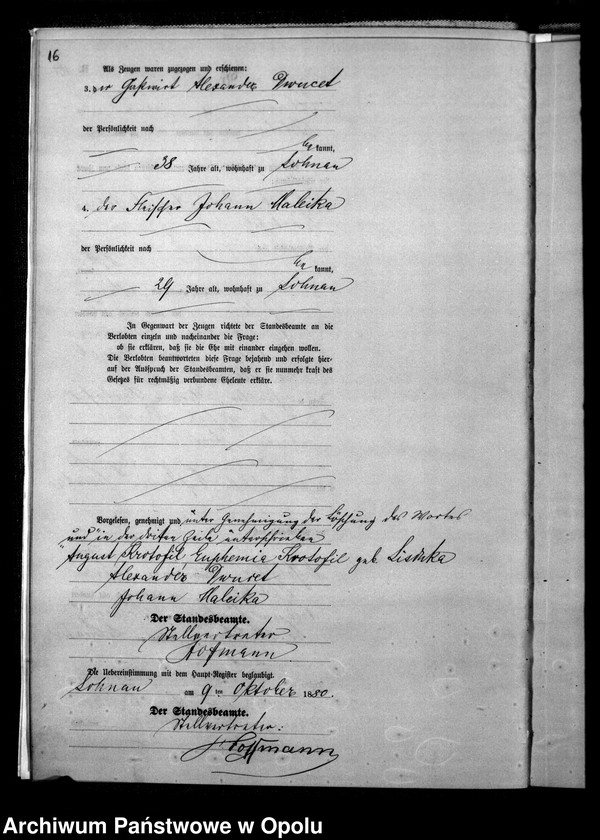 16
Als Zeugen waren zugezogen und erschienen:
3. der Gastwirt Alexander Dwucet
der Persönlichkeit nach
be kannt,
38 Jahre alt, wohnhaft zu Lohnau
4. der Fleischer Johann Maleika
der Persönlichkeit nach
be kannt,
29 Jahre alt, wohnhaft zu Lohnau
In Gegenwart der Zeugen richtete der Standesbeamte an die
Verlobten einzeln und nacheinander die Frage:
ob sie erklären, daß sie die Ehe mit einander eingehen wollen.
Die Verlobten beantworteten diese Frage bejahend und erfolgte hier-
auf der Ausspruch der Standesbeamten, daß er sie nunmehr kraft des
Gesetzes für rechtmäßig verbundene Eheleute erkläre.
Vorgelesen, genehmigt und unter Genehmigung der Löschung des Wortes
"und" in der dritten Zeile unterschrieben
August Krotofil, Euphemia Krotofil geb. Lischka
Alexander Dwucet
Johann Maleika
Der Standesbeamte.
Stellvertreter
Hofmann
Die Uebereinstimmung mit dem Haupt-Register beglaubigt.
Lohnau am 9ten Oktober 1880.
Der Standesbeamte.
Stellvertreter:
Hoffmann
Archiwum Państwowe w Opolu